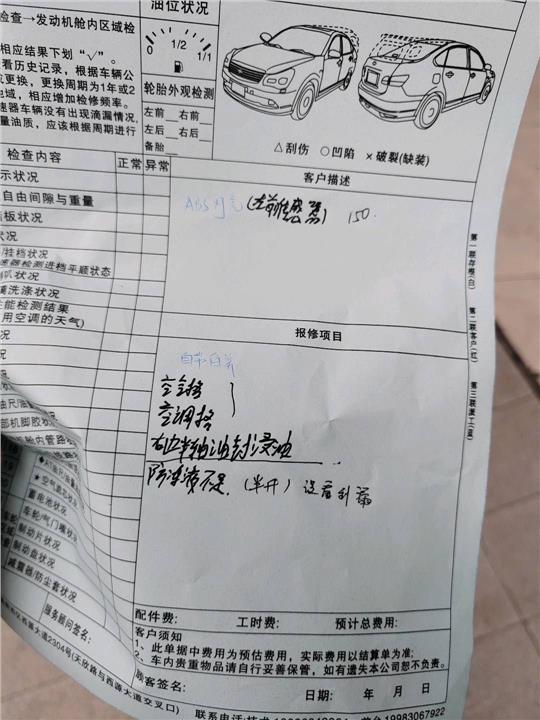 检查→发动机舱内区域检
相应结果下划“√”。
看历史记录，根据车辆公
换，更换周期为1年或2
地域，相应增加检修频率。
速器车辆没有出现滴漏情况，
量油质，应该根据周期进行
油位状况
1/2
1/1
轮胎外观检测
左前 右前
左后 右后
备胎
△刮伤 ○凹陷 ×破裂(缺装)
检查内容 正常 异常
示状况
自由间隙与重量
板状况
状况
挂档状况
速器检测进档平顺状态
喇叭状况
洗涤状况
能检测结果
用空调的天气)
客户描述
ABS灯亮(左前传感器) 150.
第一联存根(白)
第二联客户(红)
第三联派工(蓝)
报修项目
自带白养
空气格
空调格
右边半轴油封浸油
防冻液不足.（半升）没看到漏
部机脚胶状况
舱内管路状
空气滤芯状
蓄电池状况
车轮/气门嘴状
制动片状况
制动盘状况
减震器/防尘套状况
服务顾问签名：
配件费： 工时费： 预计总费用：
客户须知
1、此单据中费用为预估费用，实际费用以结算单为准;
2、车内贵重物品请自行妥善保管，如有遗失本公司恕不负责。
顾客签名： 日期： 年 月 日
西源大道2304号(天欣路与西源大道交叉口)
联系电话:技术
19983067922